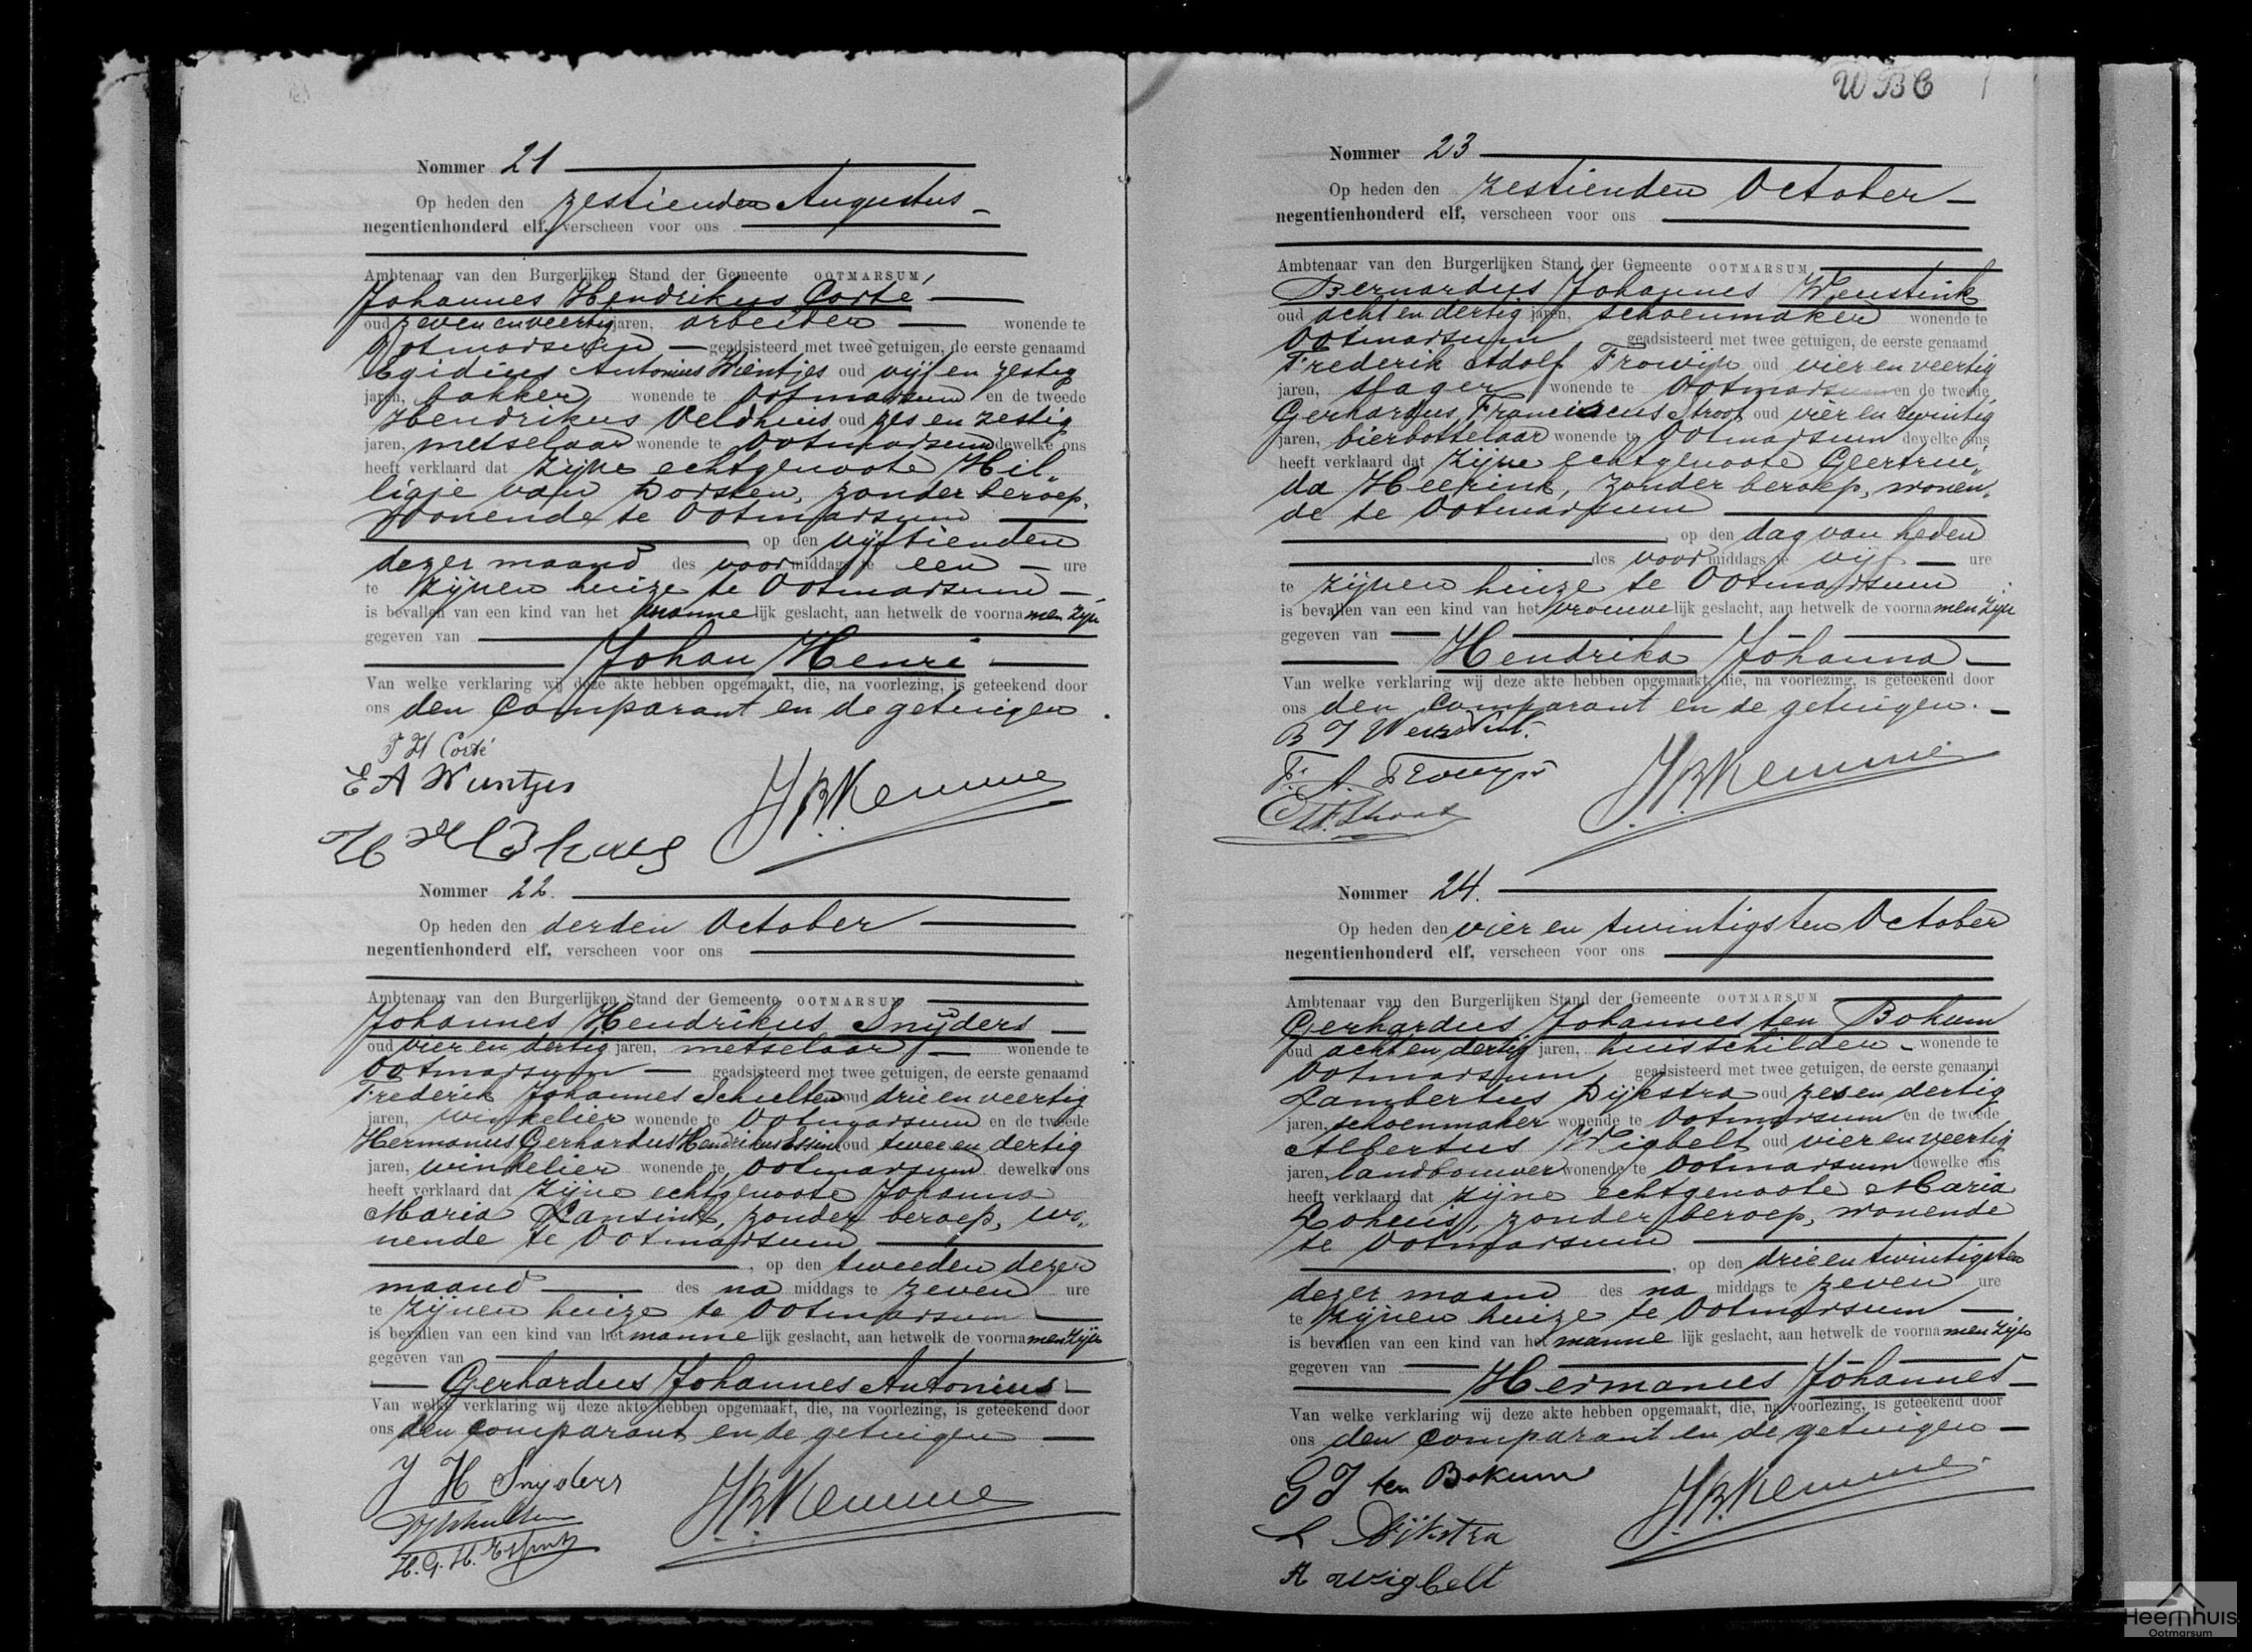 Nommer 21
Op heden den zestienden Augustus
negentienhonderd elf, verscheen voor ons
Ambtenaar van den Burgerlijken Stand der Gemeente OOTMARSUM,
Johannes Hendrikus Corté
oud zeven en veertig jaren, arbeider wonende te
Ootmarsum geadsisteerd met twee getuigen, de eerste genaamd
Egidius Antonius Wientjes oud vijf en zestig
jaren, bakker wonende te Ootmarsum en de tweede
Hendrikus Veldhuis oud zes en zestig
jaren, metselaar wonende te Ootmarsum dewelke ons
heeft verklaard dat zijne echtgenoote Hil„
ligje van Dorsten, zonder beroep,
wonende te Ootmarsum
, op den vijftienden
dezer maand des voormiddags te een ure
te zijnen huize te Ootmarsum
is bevallen van een kind van het mannelijk geslacht, aan hetwelk de voornamen zijn
gegeven van
Johan Henri
Van welke verklaring wij deze akte hebben opgemaakt, die, na voorlezing, is geteekend door
ons den comparant en de getuigen.
J H Corté
E A Wientjes
J.B.Kemme
Nommer 22.
Op heden den derden October
negentienhonderd elf, verscheen voor ons
Ambtenaar van den Burgerlijken Stand der Gemeente OOTMARSUM
Johannes Hendrikus Snijders
oud vier en dertig jaren, metselaar wonende te
Ootmarsum geadsisteerd met twee getuigen, de eerste genaamd
Frederik Johannes Schulten oud drie en veertig
jaren, winkelier wonende te Ootmarsum en de tweede
Hermanus Gerhardus Hendrikus oud twee en dertig
jaren, winkelier wonende te Ootmarsum dewelke ons
heeft verklaard dat zijne echtgenoote Johanna
Maria Lansink, zonder beroep, wo„
nende te Ootmarsum
, op den tweeden dezer
maand des na middags te zeven ure
te zijnen huize te Ootmarsum
is bevallen van een kind van het mannelijk geslacht, aan hetwelk de voornamen zijn
gegeven van
Gerhardus Johannes Antonius
Van welke verklaring wij deze akte hebben opgemaakt, die, na voorlezing, is geteekend door
ons den comparant en de getuigen
J H Snijders
J.B.Kemme
FJSchulten
H. G. H.
WBC
Nommer 23
Op heden den zestienden October
negentienhonderd elf, verscheen voor ons
Ambtenaar van den Burgerlijken Stand der Gemeente OOTMARSUM
Bernardus Johannes Wenstink
oud acht en dertig jaren, schoenmaker wonende te
Ootmarsum geadsisteerd met twee getuigen, de eerste genaamd
Frederik Adolf Frowijn oud vier en veertig
jaren, slager wonende te Ootmarsum en de tweede
Gerhardus Franciscus Stroot oud vier en twintig
jaren, bierbottelaar wonende te Ootmarsum dewelke ons
heeft verklaard dat zijne echtgenoote Geertrui„
da Heerink, zonder beroep, wonen„
de te Ootmarsum
, op den dag van heden
des voormiddags te vijf ure
te zijnen huize te Ootmarsum
is bevallen van een kind van het vrouwelijk geslacht, aan hetwelk de voornamen zijn
gegeven van
Hendrika Johanna
Van welke verklaring wij deze akte hebben opgemaakt, die, na voorlezing, is geteekend door
ons den comparant en de getuigen.
B J Wenstink.
F. A. Frowijn
J.B.Kemme
Stroot
Nommer 24.
Op heden den vier en twintigsten October
negentienhonderd elf, verscheen voor ons
Ambtenaar van den Burgerlijken Stand der Gemeente OOTMARSUM
Gerhardus Johannes ten Bokum
oud acht en dertig jaren, huisschilder wonende te
Ootmarsum geadsisteerd met twee getuigen, de eerste genaamd
Lambertus Dijkstra oud zes en dertig
jaren, schoenmaker wonende te Ootmarsum en de tweede
Albertus Wigbelt oud vier en veertig
jaren, landbouwer wonende te Ootmarsum dewelke ons
heeft verklaard dat zijne echtgenoote Maria
Lohuis, zonder beroep, wonende
te Ootmarsum
, op den drie en twintigsten
dezer maand des na middags te zeven ure
te zijnen huize te Ootmarsum
is bevallen van een kind van het mannelijk geslacht, aan hetwelk de voornamen zijn
gegeven van
Hermanus Johannes
Van welke verklaring wij deze akte hebben opgemaakt, die, na voorlezing, is geteekend door
ons den comparant en de getuigen
G J ten Bokum
J.B.Kemme
L Dijkstra
A Wigbelt
Heemhuis
Ootmarsum